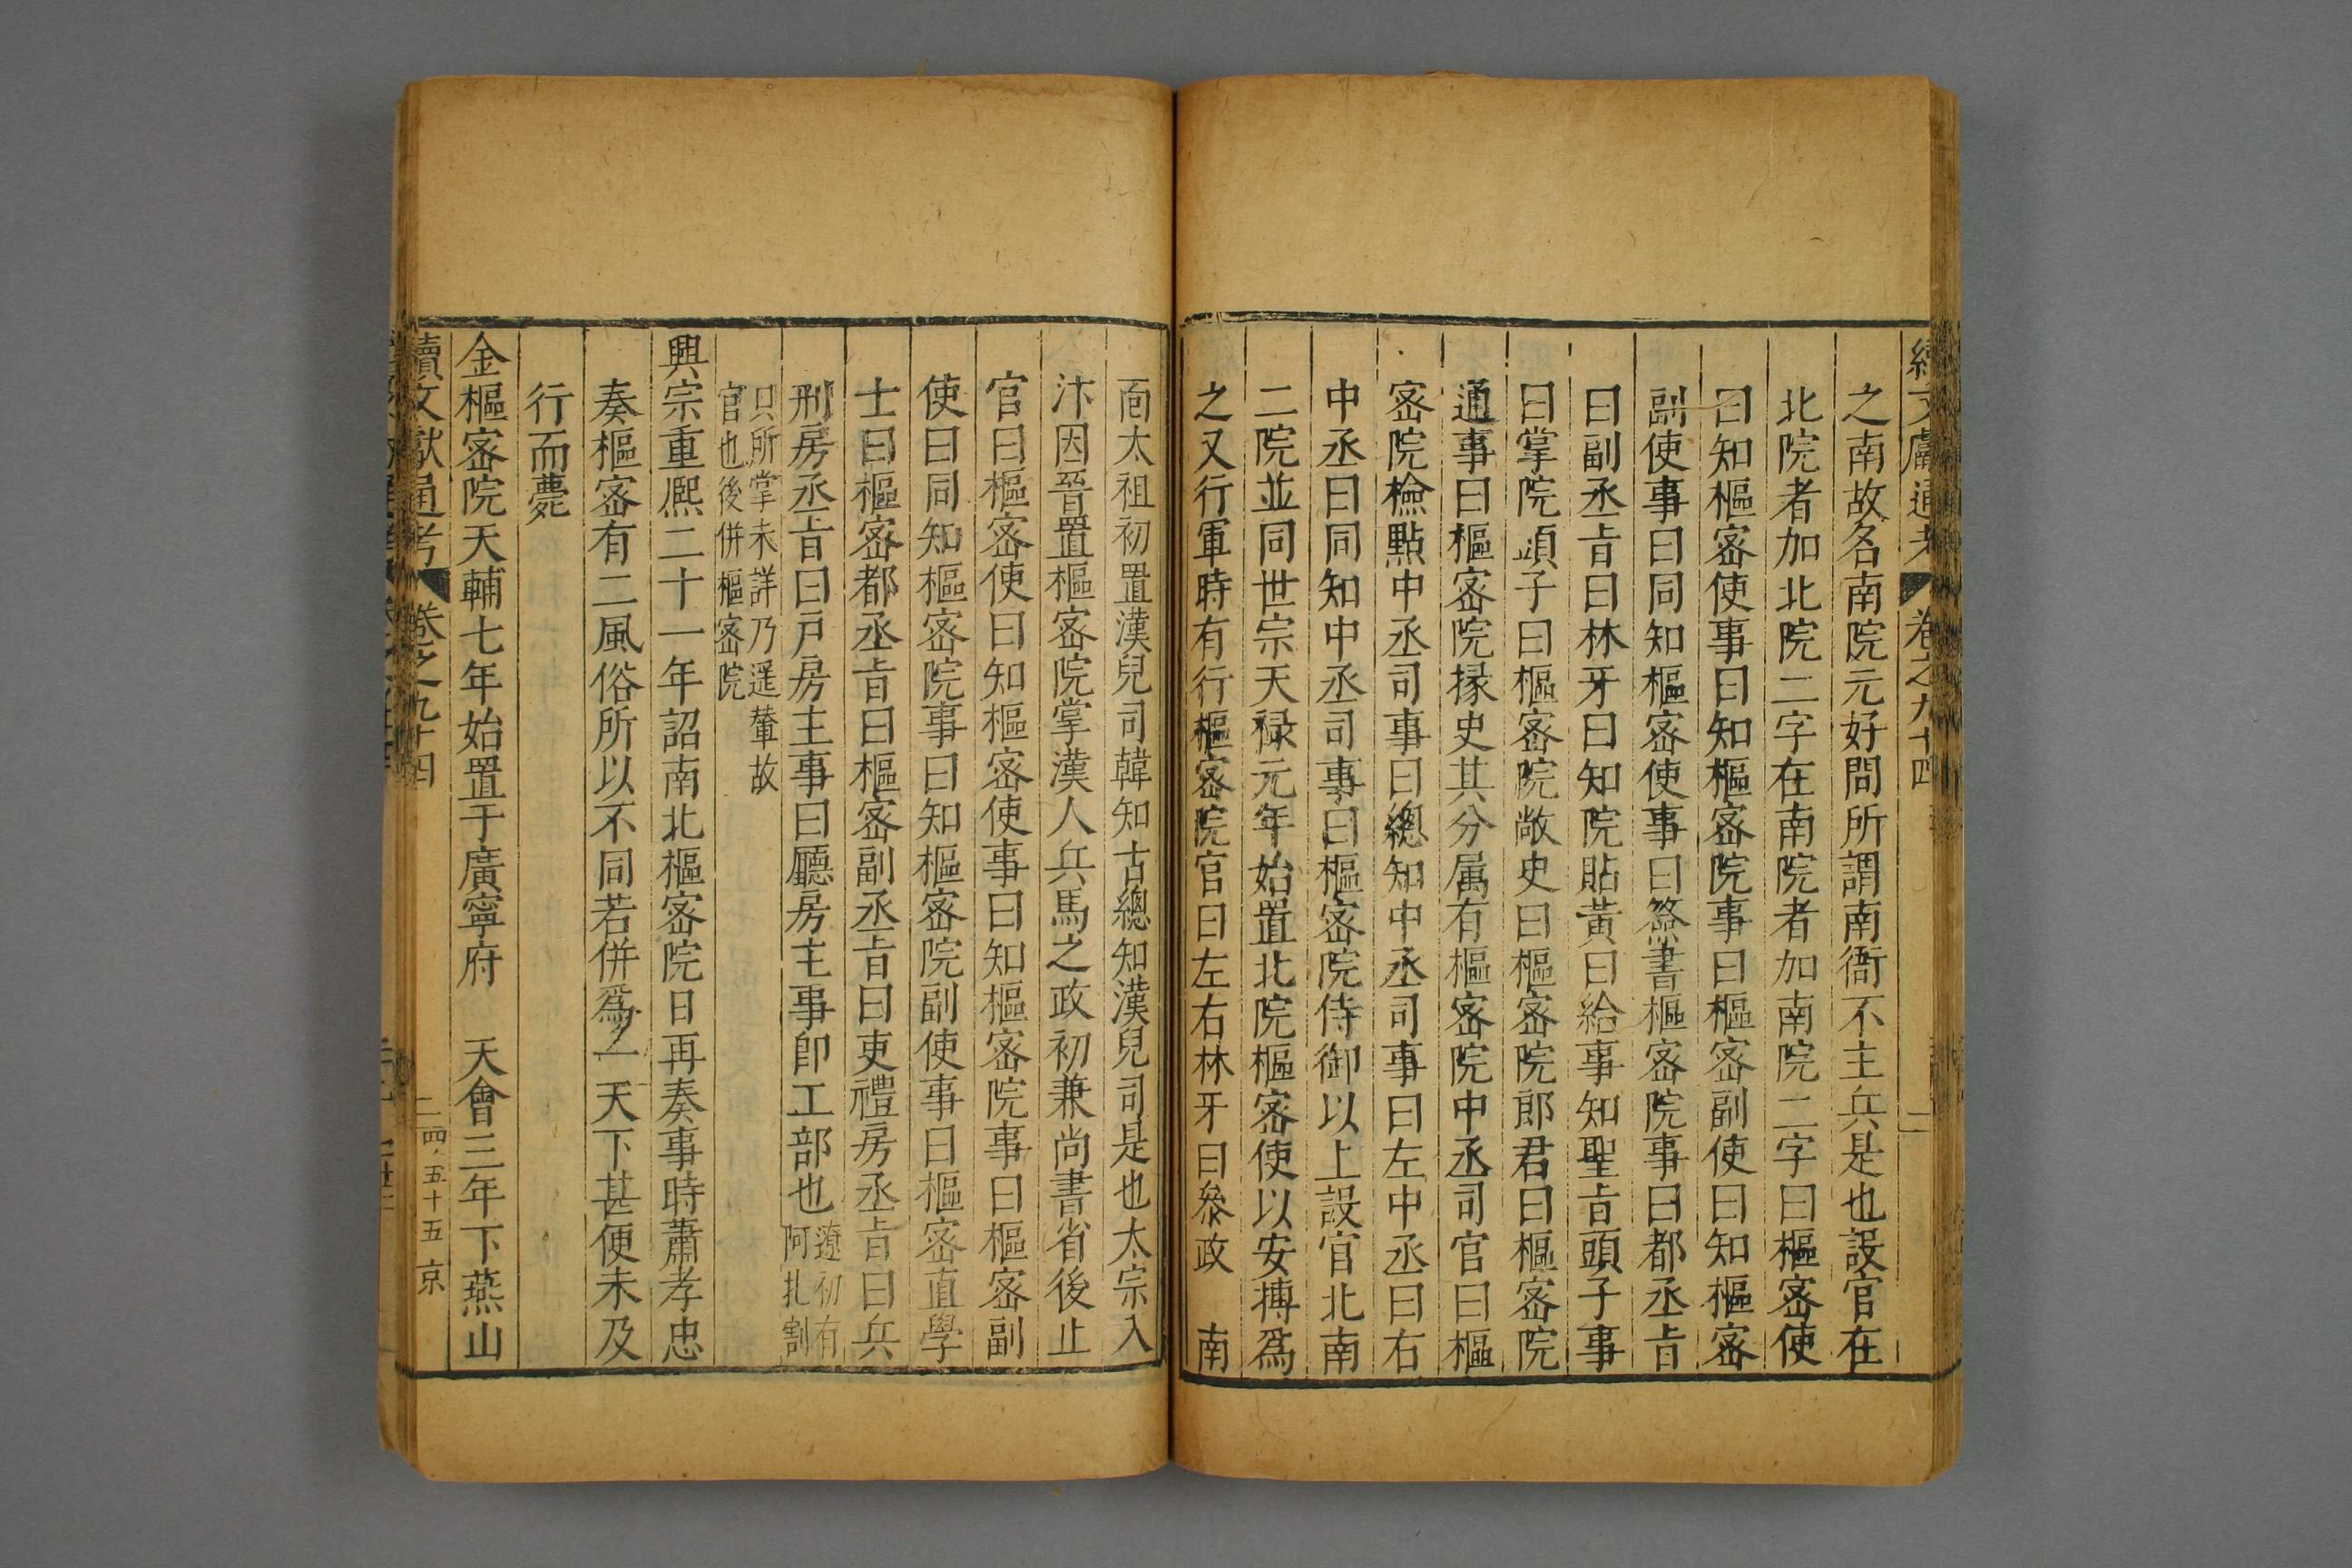 續文獻通考 卷之九十四 二
之南故名南院元好問所謂南衙不主兵是也設官在
北院者加北院二字在南院者加南院二字曰樞宻使
曰知樞宻使事曰知樞宻院事曰樞宻副使曰知樞宻
副使事曰同知樞宻使事曰簽書樞宻院事曰都丞㫖
曰副丞㫖曰林牙曰知院貼黃曰給事知聖㫖頭子事
曰掌院頭子曰樞宻院敞史曰樞宻院郎君曰樞宻院
通事曰樞宻院掾史其分属有樞宻院中丞司官曰樞
宻院檢點中丞司事曰總知中丞司事曰左中丞曰右
中丞曰同知中丞司事曰樞宻院侍御以上設官北南
二院並同世宗天禄元年始置北院樞宻使以安摶爲
之又行軍時有行樞宻院官曰左右林牙曰叅政 南
靣太祖初置漢兒司韓知古總知漢兒司是也太宗入
汴因晉置樞宻院掌漢人兵馬之政初兼尚書省後止
官曰樞宻使曰知樞宻使事曰知樞宻院事曰樞宻副
使曰同知樞宻院事曰知樞宻院副使事曰樞宻直學
士曰樞宻都丞㫖曰樞宻副丞㫖曰吏禮房丞㫖曰兵
刑房丞㫖曰戸房主事曰廳房主事即工部也遼初有
阿扎割
只所掌未詳乃遥輦故
官也後併樞宻院
興宗重熈二十一年詔南北樞宻院日再奏事時蕭孝忠
奏樞宻有二風俗所以不同若併爲一天下甚便未及
行而薨
金樞宻院天輔七年始置于廣寧府 天會三年下燕山
續文獻通考 卷之九十四 二四 五十五 京